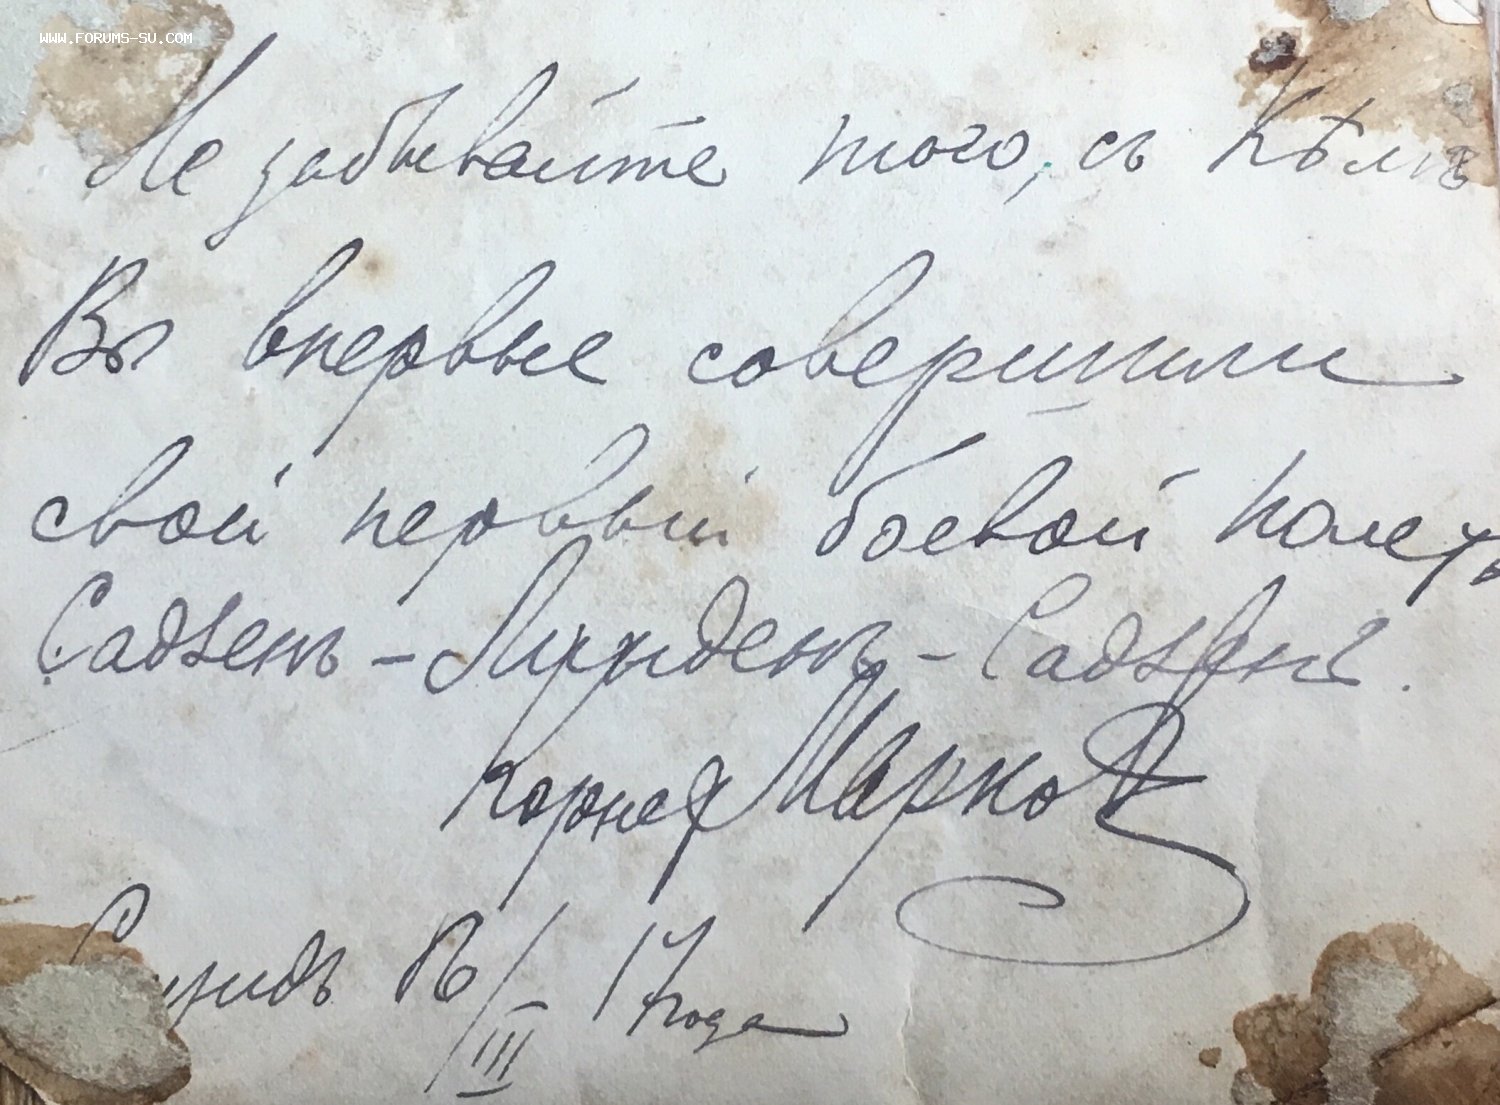 WWW.FORUMS-SU.COM
Не забывайте того, съ кѣмъ
Вы впервые совершили
свой первый боевой полетъ
Садзенъ – – Садзенъ.
Корнет Марков
III 17 года